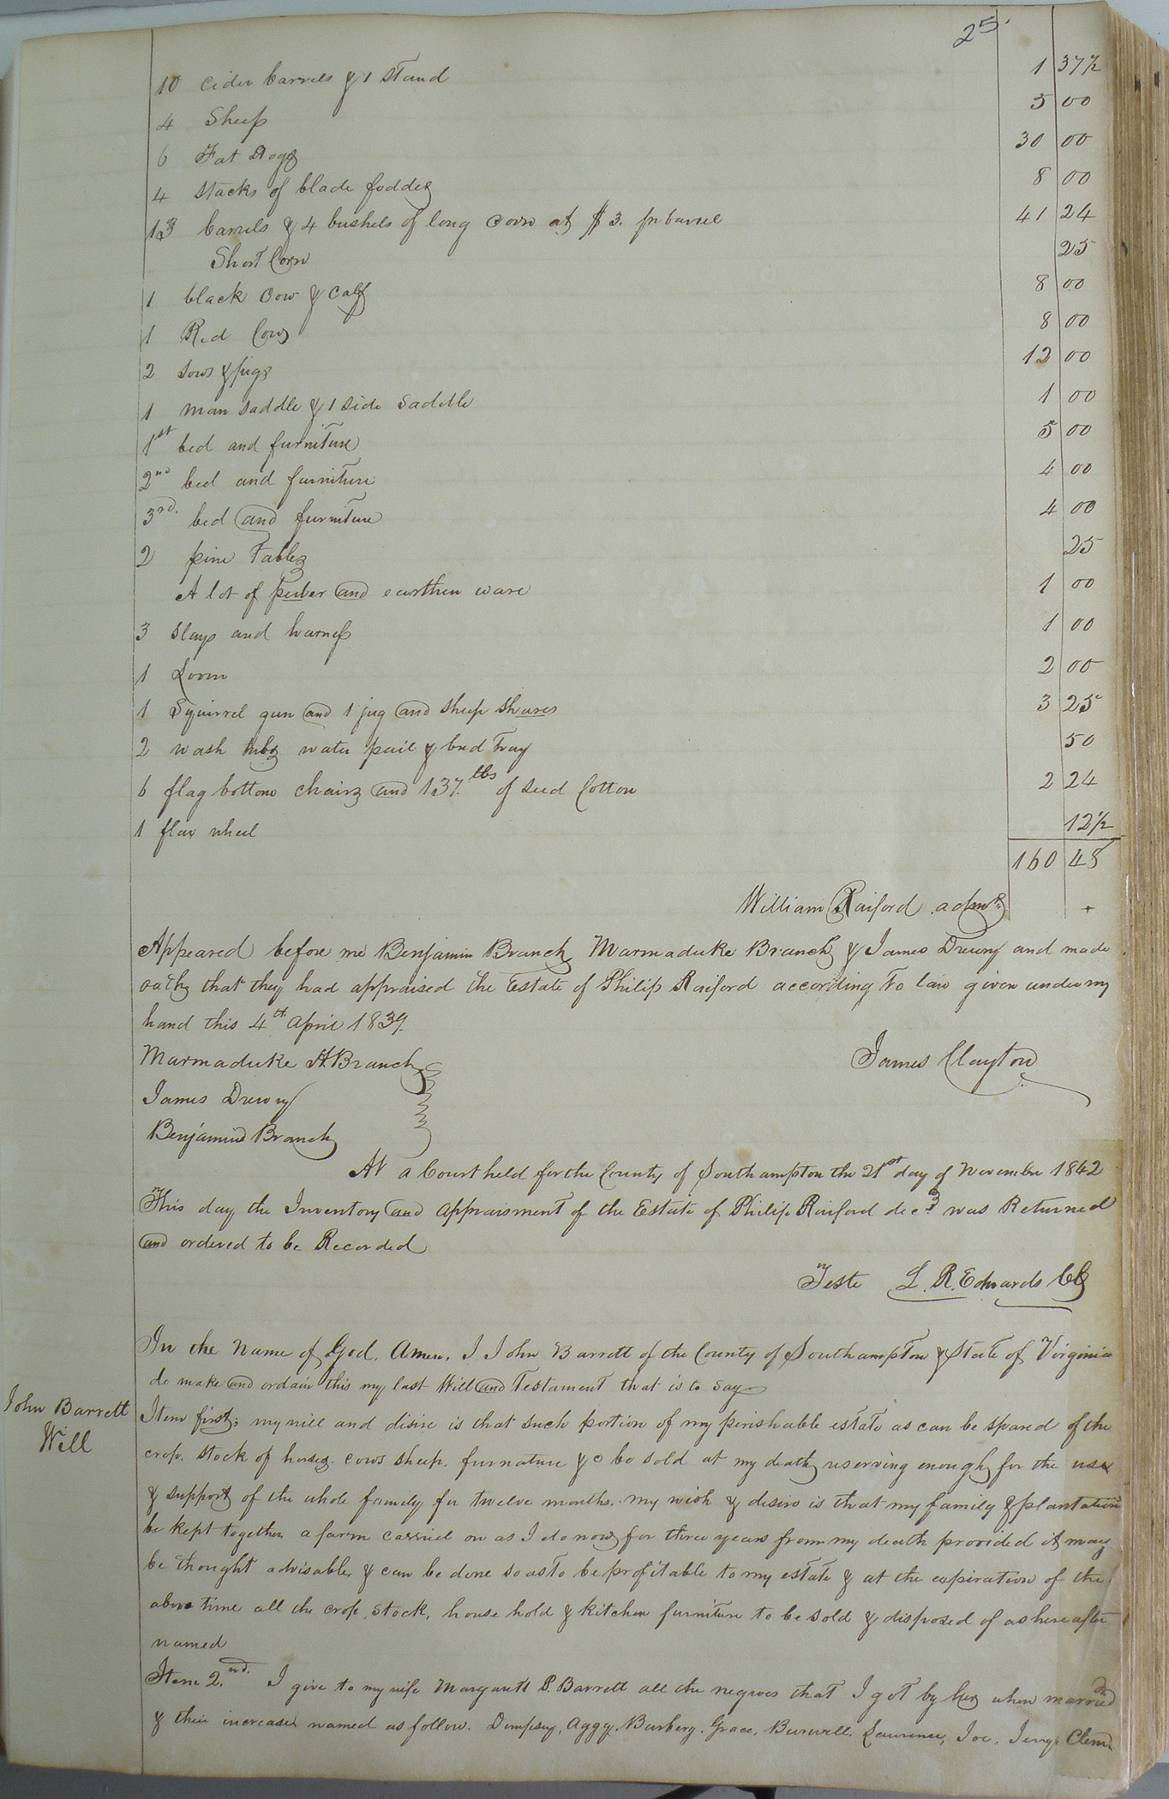 25.
10 cider barrels & 1 stand 1 37½
4 Sheep 5 00
6 Fat Hogs 30 00
4 stacks of blade fodder 8 00
13 barrels & 4 bushels of long corn at $3. pr barrel 41 24
Short Corn 25
1 black cow & calf 8 00
1 Red Cow 8 00
2 sows & pigs 12 00
1 man saddle & 1 side saddle 1 00
1st bed and furniture 5 00
2nd bed and furniture 4 00
3rd. bed and furniture 4 00
2 pine Tables 25
A lot of peuter and earthen ware 1 00
3 Slays and harness 1 00
1 Loom 2 00
1 Squirrel gun and 1 jug and sheep shares 3 25
2 wash tubs water pail & bread Tray 50
6 flag bottom chairs and 137. lbs of seed Cotton 2 24
1 flax wheel 12½
160 48
William Raiford admr.
Appeared before me Benjamin Branch Marmaduke Branch & James Drewry and made
oath that they had appraised the Estate of Philip Raiford according To law given under my
hand this 4th April 1839.
Marmaduke A Branch
James Clayton
James Drewry
Benjamin Branch
At a Court held for the County of Southampton the 21st day of November 1842
This day the Inventory and appraisment of the Estate of Philip Raiford decd. was Returned
and ordered to be Recorded
Teste L. R. Edwards Clk
In the Name of God. Amen. I John Barrett of the County of Southampton & State of Virginia
do make and ordain this my last Will and Testament that is to say
John Barrett
Will
Item first; my will and disire is that such portion of my perishable estate as can be spared of the
crop. stock of horses. cows sheep. furnature &c be sold at my death reserving enough for the use
& support of the whole family for twelve months. my wish & desire is that my family & plantation
be kept together a farm carried on as I do now for three years from my death provided it may
be thought advisable & can be done so as to be profitable to my estate & at the expiration of the
above time all the crop, stock, house hold & kitchen furniture to be sold & disposed of as here after
named
Item 2.nd. I give to my wife Margarett P. Barrett all the negroes that I got by her when married
& their increase named as follow. Dempsey, Aggy. Burbery. Grace, Burwell. Lawrence, Joe, Jerry. Clem